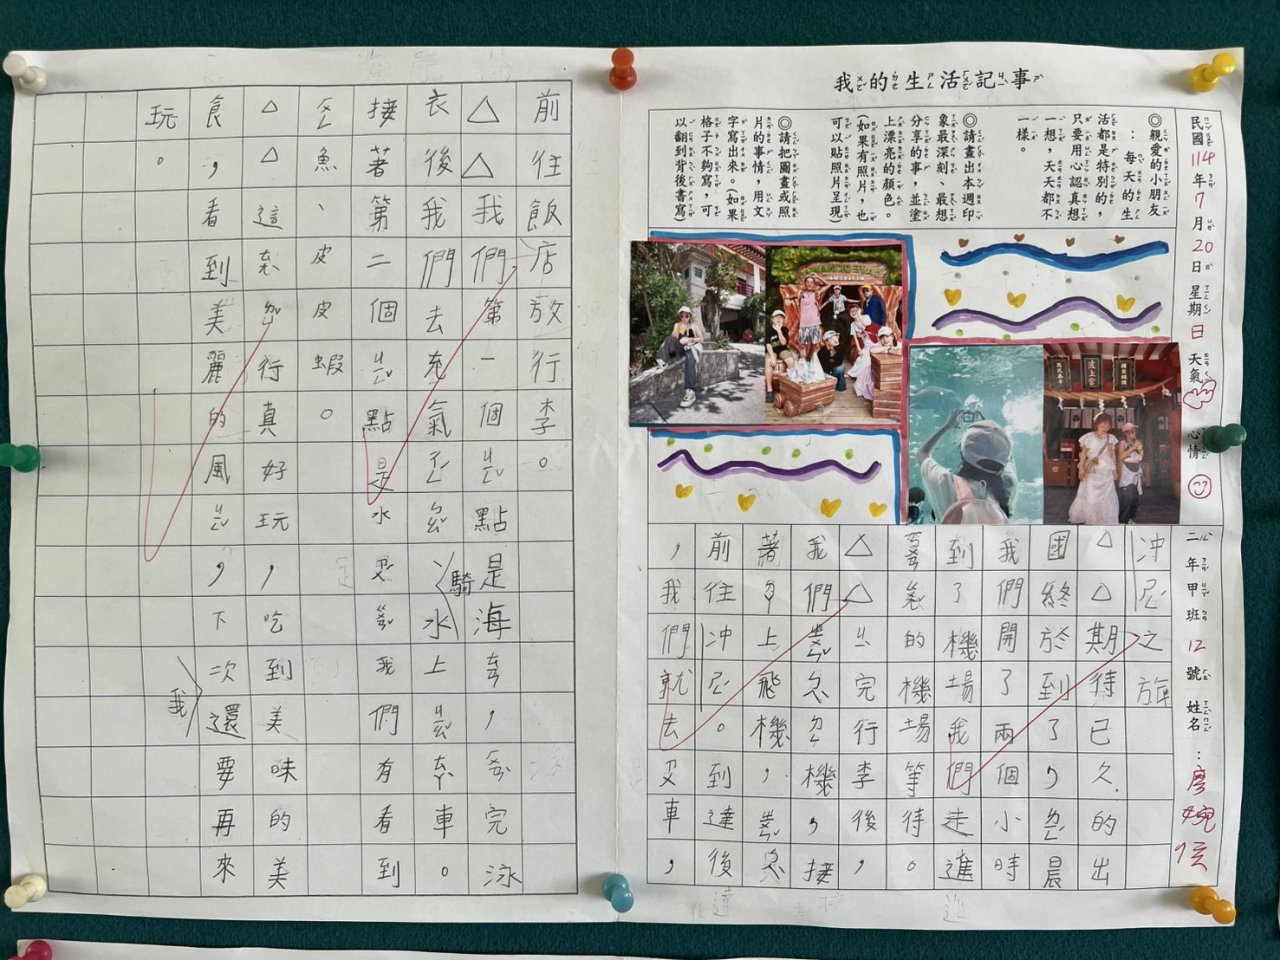 我的生活記事
民國114年7月20日星期日 天氣 心情
二年甲班12號 姓名:
◎親愛的小朋友
:每天的生
活都是特別的,
只要用心認真想
一想,天天都不
一樣。
◎請畫出本週印
象最深刻、最想
分享的事,並塗
上漂亮的顏色。
(如果有照片,也
可以貼照片呈現)
◎請把圖畫或照
片的事情,用文
字寫出來。(如果
格子不夠寫,可
以翻到背後書寫)
波上宮
沖尼之旅
△△期待已久的出
國終於到了,晨
我們開了兩個小時
到了機場我們走進
的機場等待。
△△完行李後,
我們機,接
著上飛機,
前往沖尼。到達後
,我們就去又車,
前往飯店放行李。
△△我們第一個ㄐㄧㄥˇ點是海,完泳
衣後我們去充氣、騎水上車。
接著第二個ㄐㄧㄥˇ點是水我們有看到
魚、皮皮蝦。
△△這行真好玩,吃到美味的美
食,看到美麗的風ㄐㄧㄥˇ,下次我還要再來
玩。